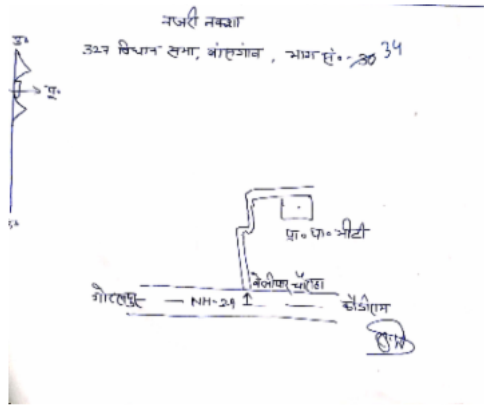 नजरी नक्शा
327 विधान सभा, बांसगांव, भाग सं०- 30 34
उ०
पू०
प्रा० पा० भीटी
बेलीपार चौराहा
गोरखपुर — NH-29 कौडीराम